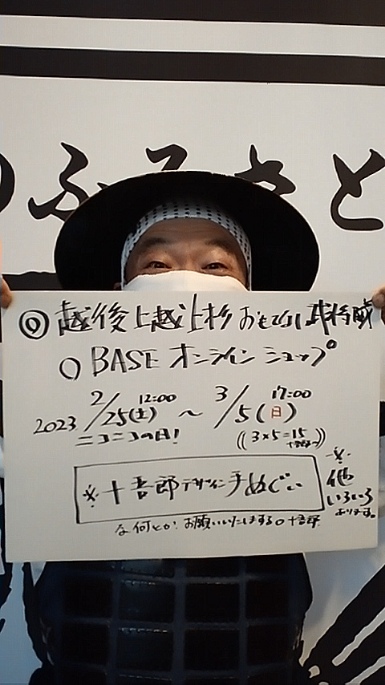 のふるさと
◎越後上越上杉おもてなし武将隊
○BASEオンラインショップ
2023 2/25(土) 12:00 ~ 3/5(日) 17:00
ニコニコの日!
((3×5=15
※十吾郎デザイン手ぬぐい
※他いろいろあります。
な何とか!お願いいたしまする○十吾郎